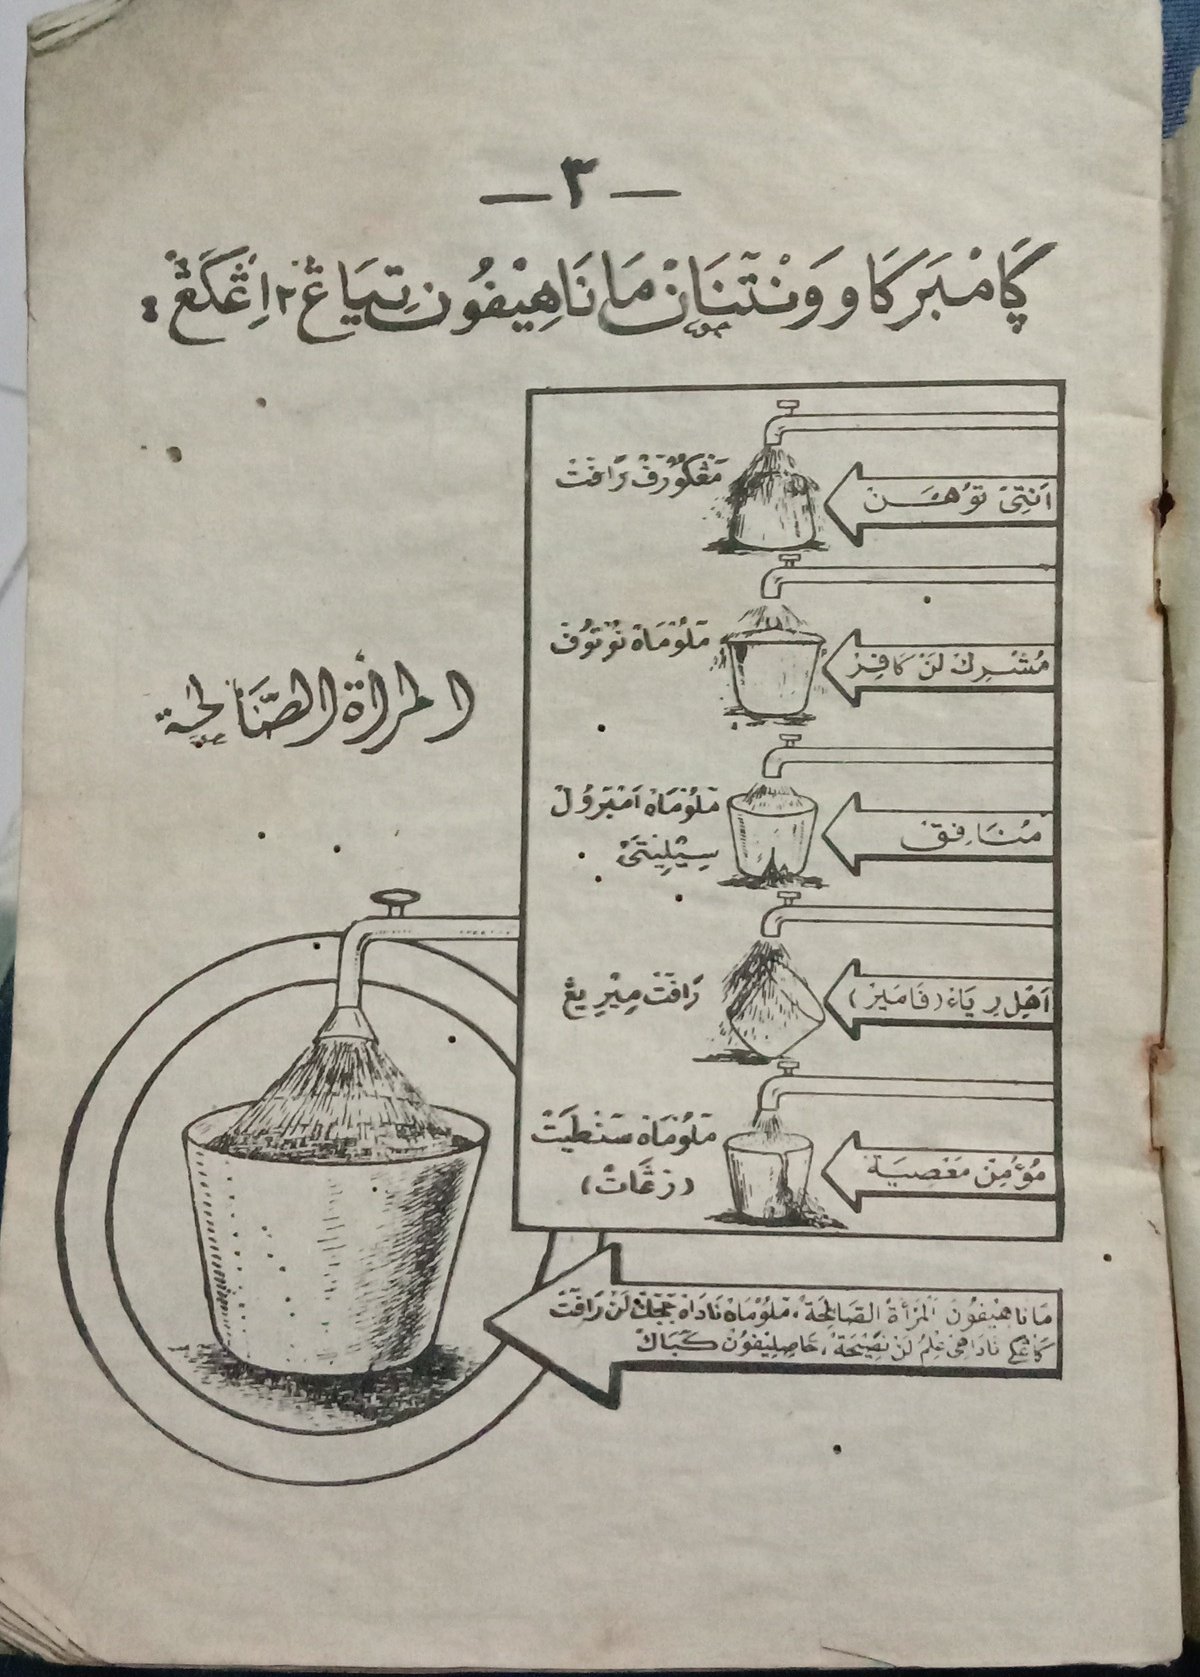 — ٣ —
ڮَامْبَر كَاوَونْتَنَان مَانَاهِيْفُون تِيَاڠ٢ اِڠْكَڠْ :
اَنْتِيْ تُوْهَنْ
مَڠْكُوْرَفْ رَافَتْ
مُشْرِكْ لَنْ كَافِرْ
مَلُوْمَاهْ تُوْتُوْفْ
مُنَافِقْ
مَلُوْمَاهْ اَمْبَرَوُلْ
سِيْلِيْتَيْ
اَهْلِ رِيَاءْ (فَامَيرْ)
رَافَتْ مِيْرِيڠْ
مُؤْمِنْ مَعْصِيَةْ
مَلُوْمَاهْ
المرأة الصَّالحة
مَانَاهِيْفُونْ اَلْمَرْأَة الصَّالِحَةْ، مَلُوْمَاهْ نَادَاهْ جَجَكْ لَنْ رَافَتْ
عِلْمُ لَنْ نَصِيْحَةْ، حَاصِلِيْفُوْنْ كَبَاكْ